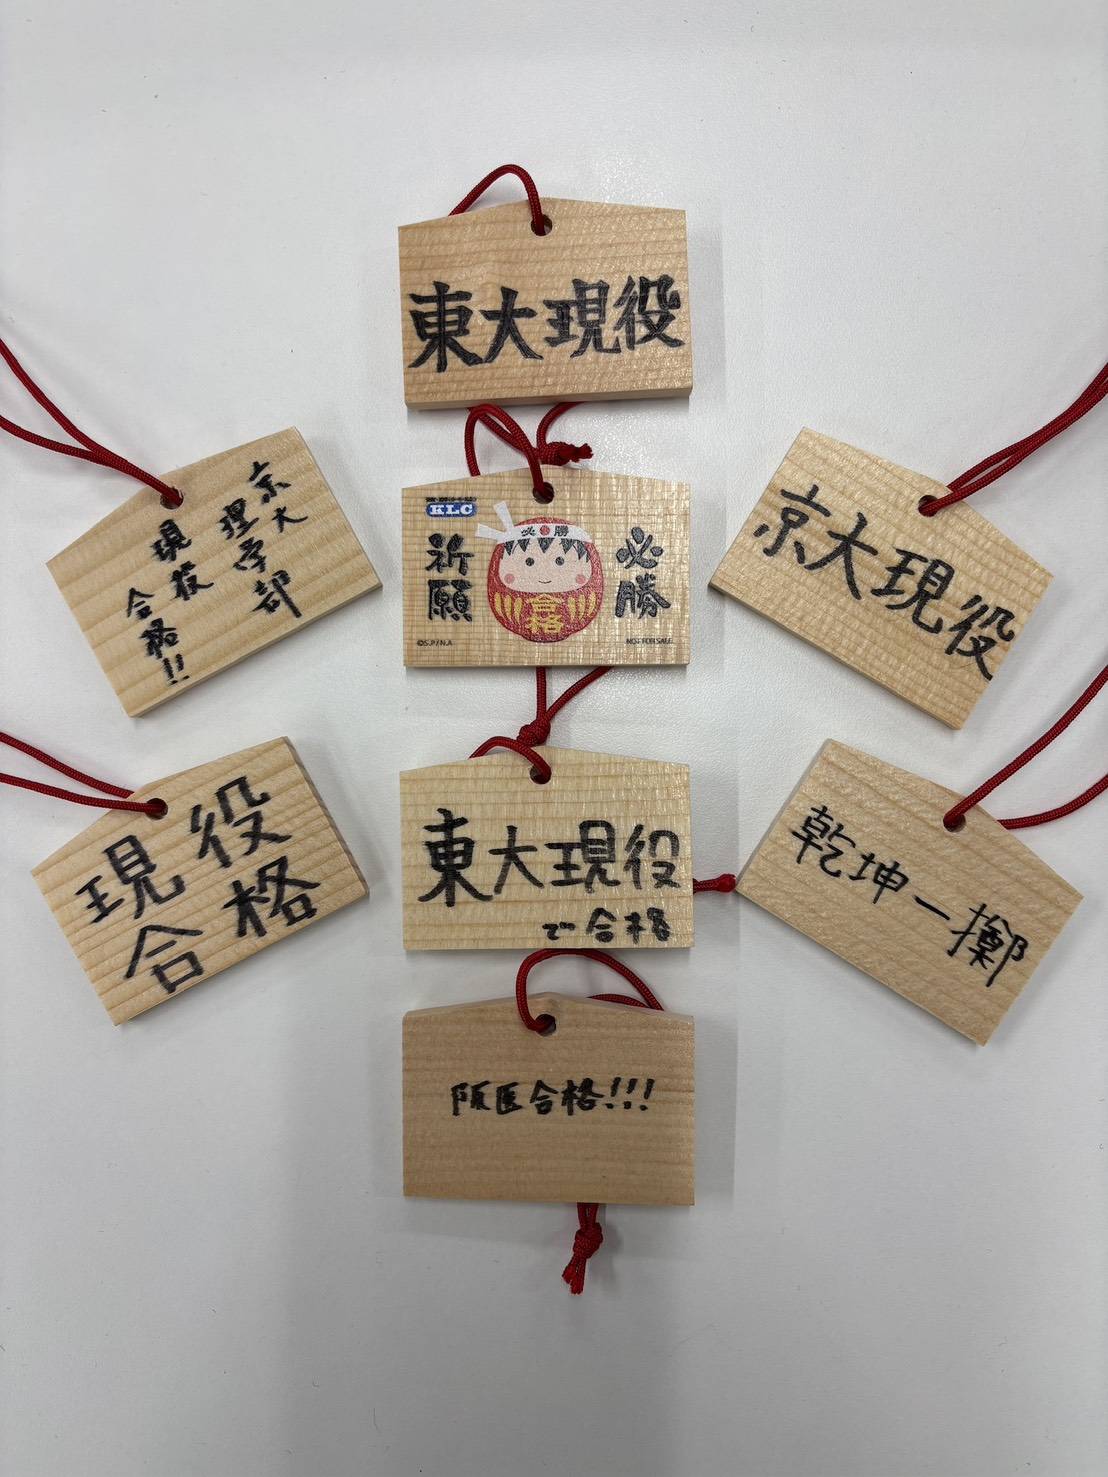 東大現役
京大
理学部
現役
合格!!
KLC
祈願
必勝
合格
必勝
©S.P/N.A
NOT FOR SALE
京大現役
現役
合格
東大現役
で合格
乾坤一擲
阪医合格!!!